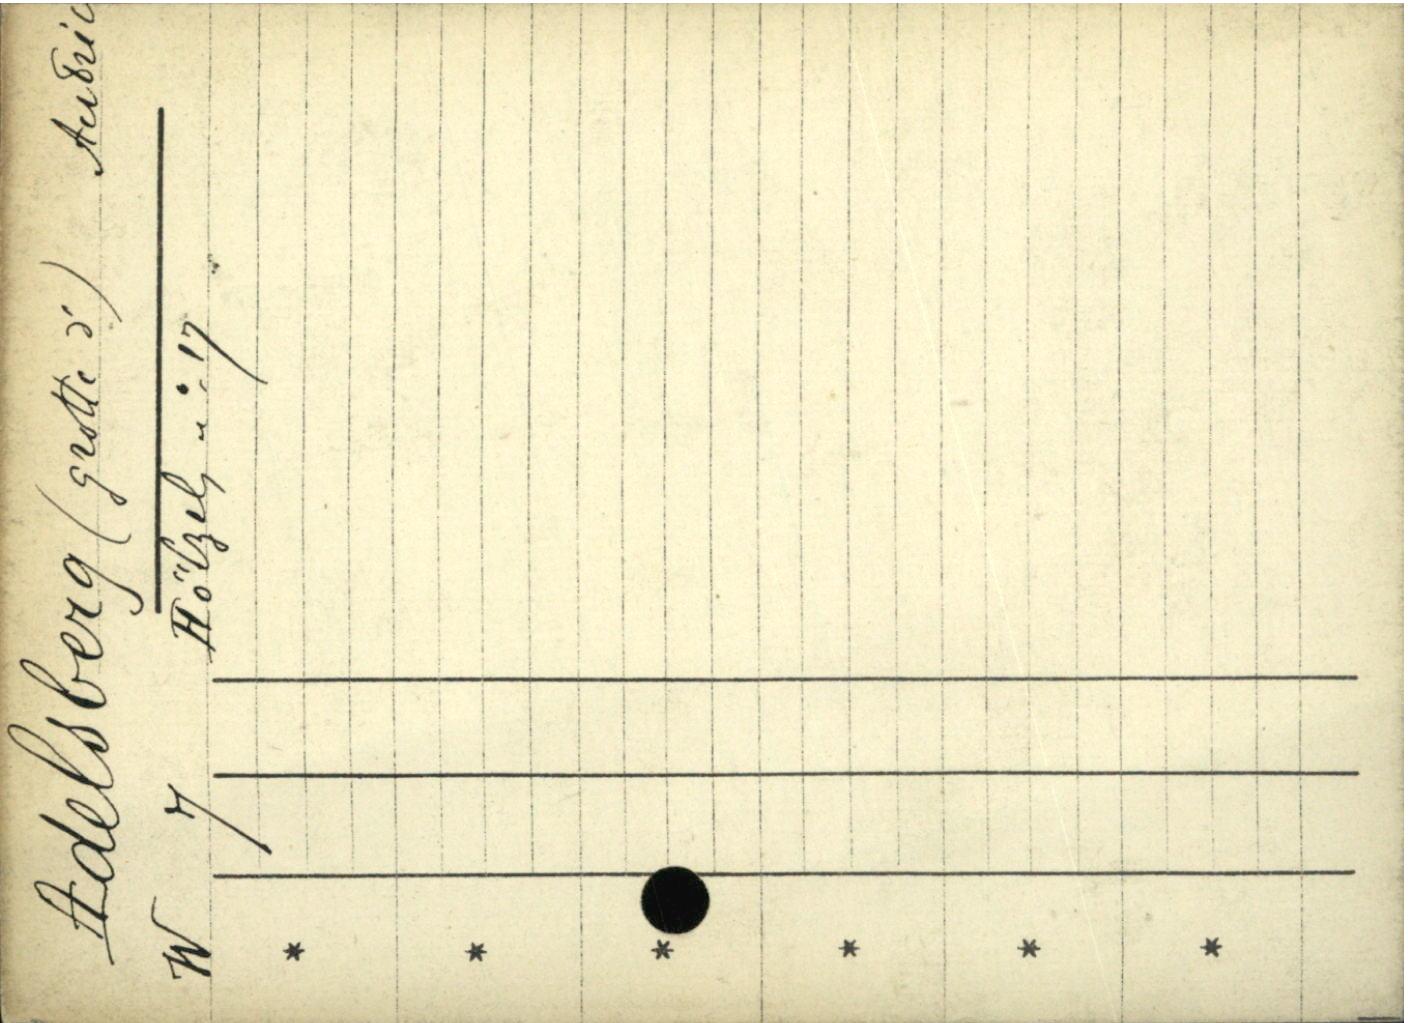 Adelsberg (grotte d') Autric
W 7 Hölzel, n°: 17
*
*
*
*
*
*